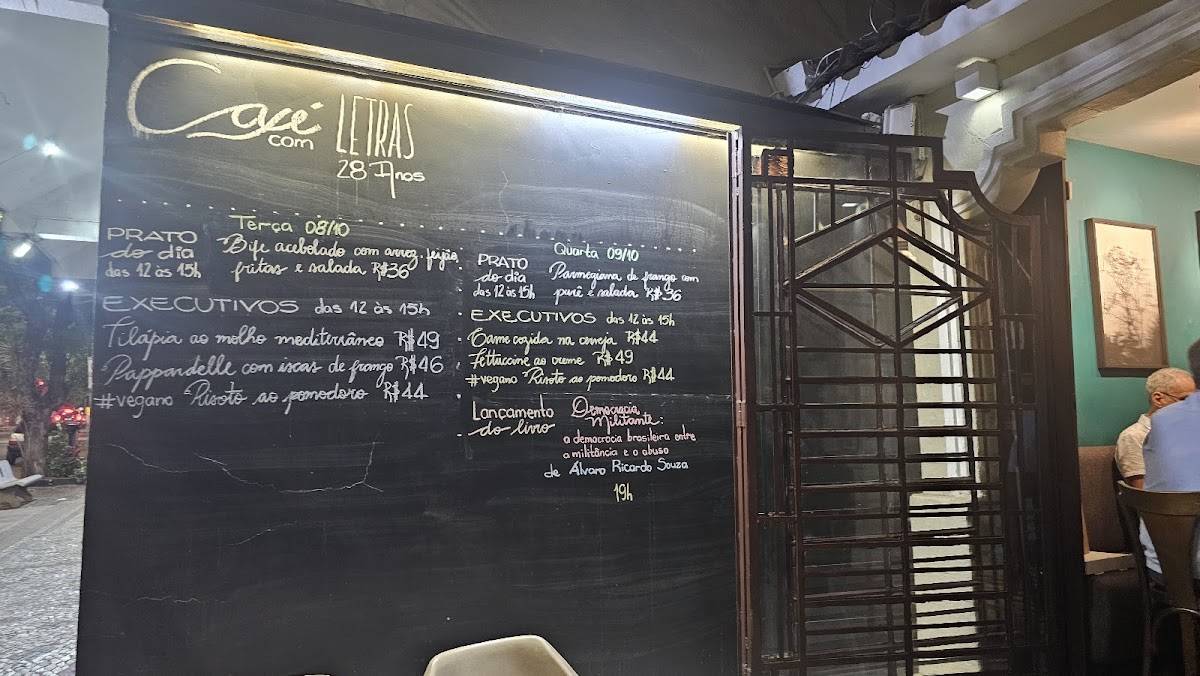 Café
com
LETRAS
28 Anos
Terça 08/10
PRATO
do dia
das 12 às 15h
Bife acebolado com arroz, feijão,
fritas e salada R$36
EXECUTIVOS das 12 às 15h
Tilápia ao molho mediterrâneo R$49
Pappardelle com iscas de frango R$46
#vegano Risoto ao pomodoro R$44
Quarta 09/10
PRATO
do dia
das 12 às 15h
Parmegiana de frango com
purê e salada R$36
EXECUTIVOS das 12 às 15h
Carne cozida na cerveja R$44
Fettuccine ao creme R$49
#vegano Risoto ao pomodoro R$44
Lançamento
do livro
Democracia
Militante:
a democracia brasileira entre
a militância e o abuso
de Álvaro Ricardo Souza
19h